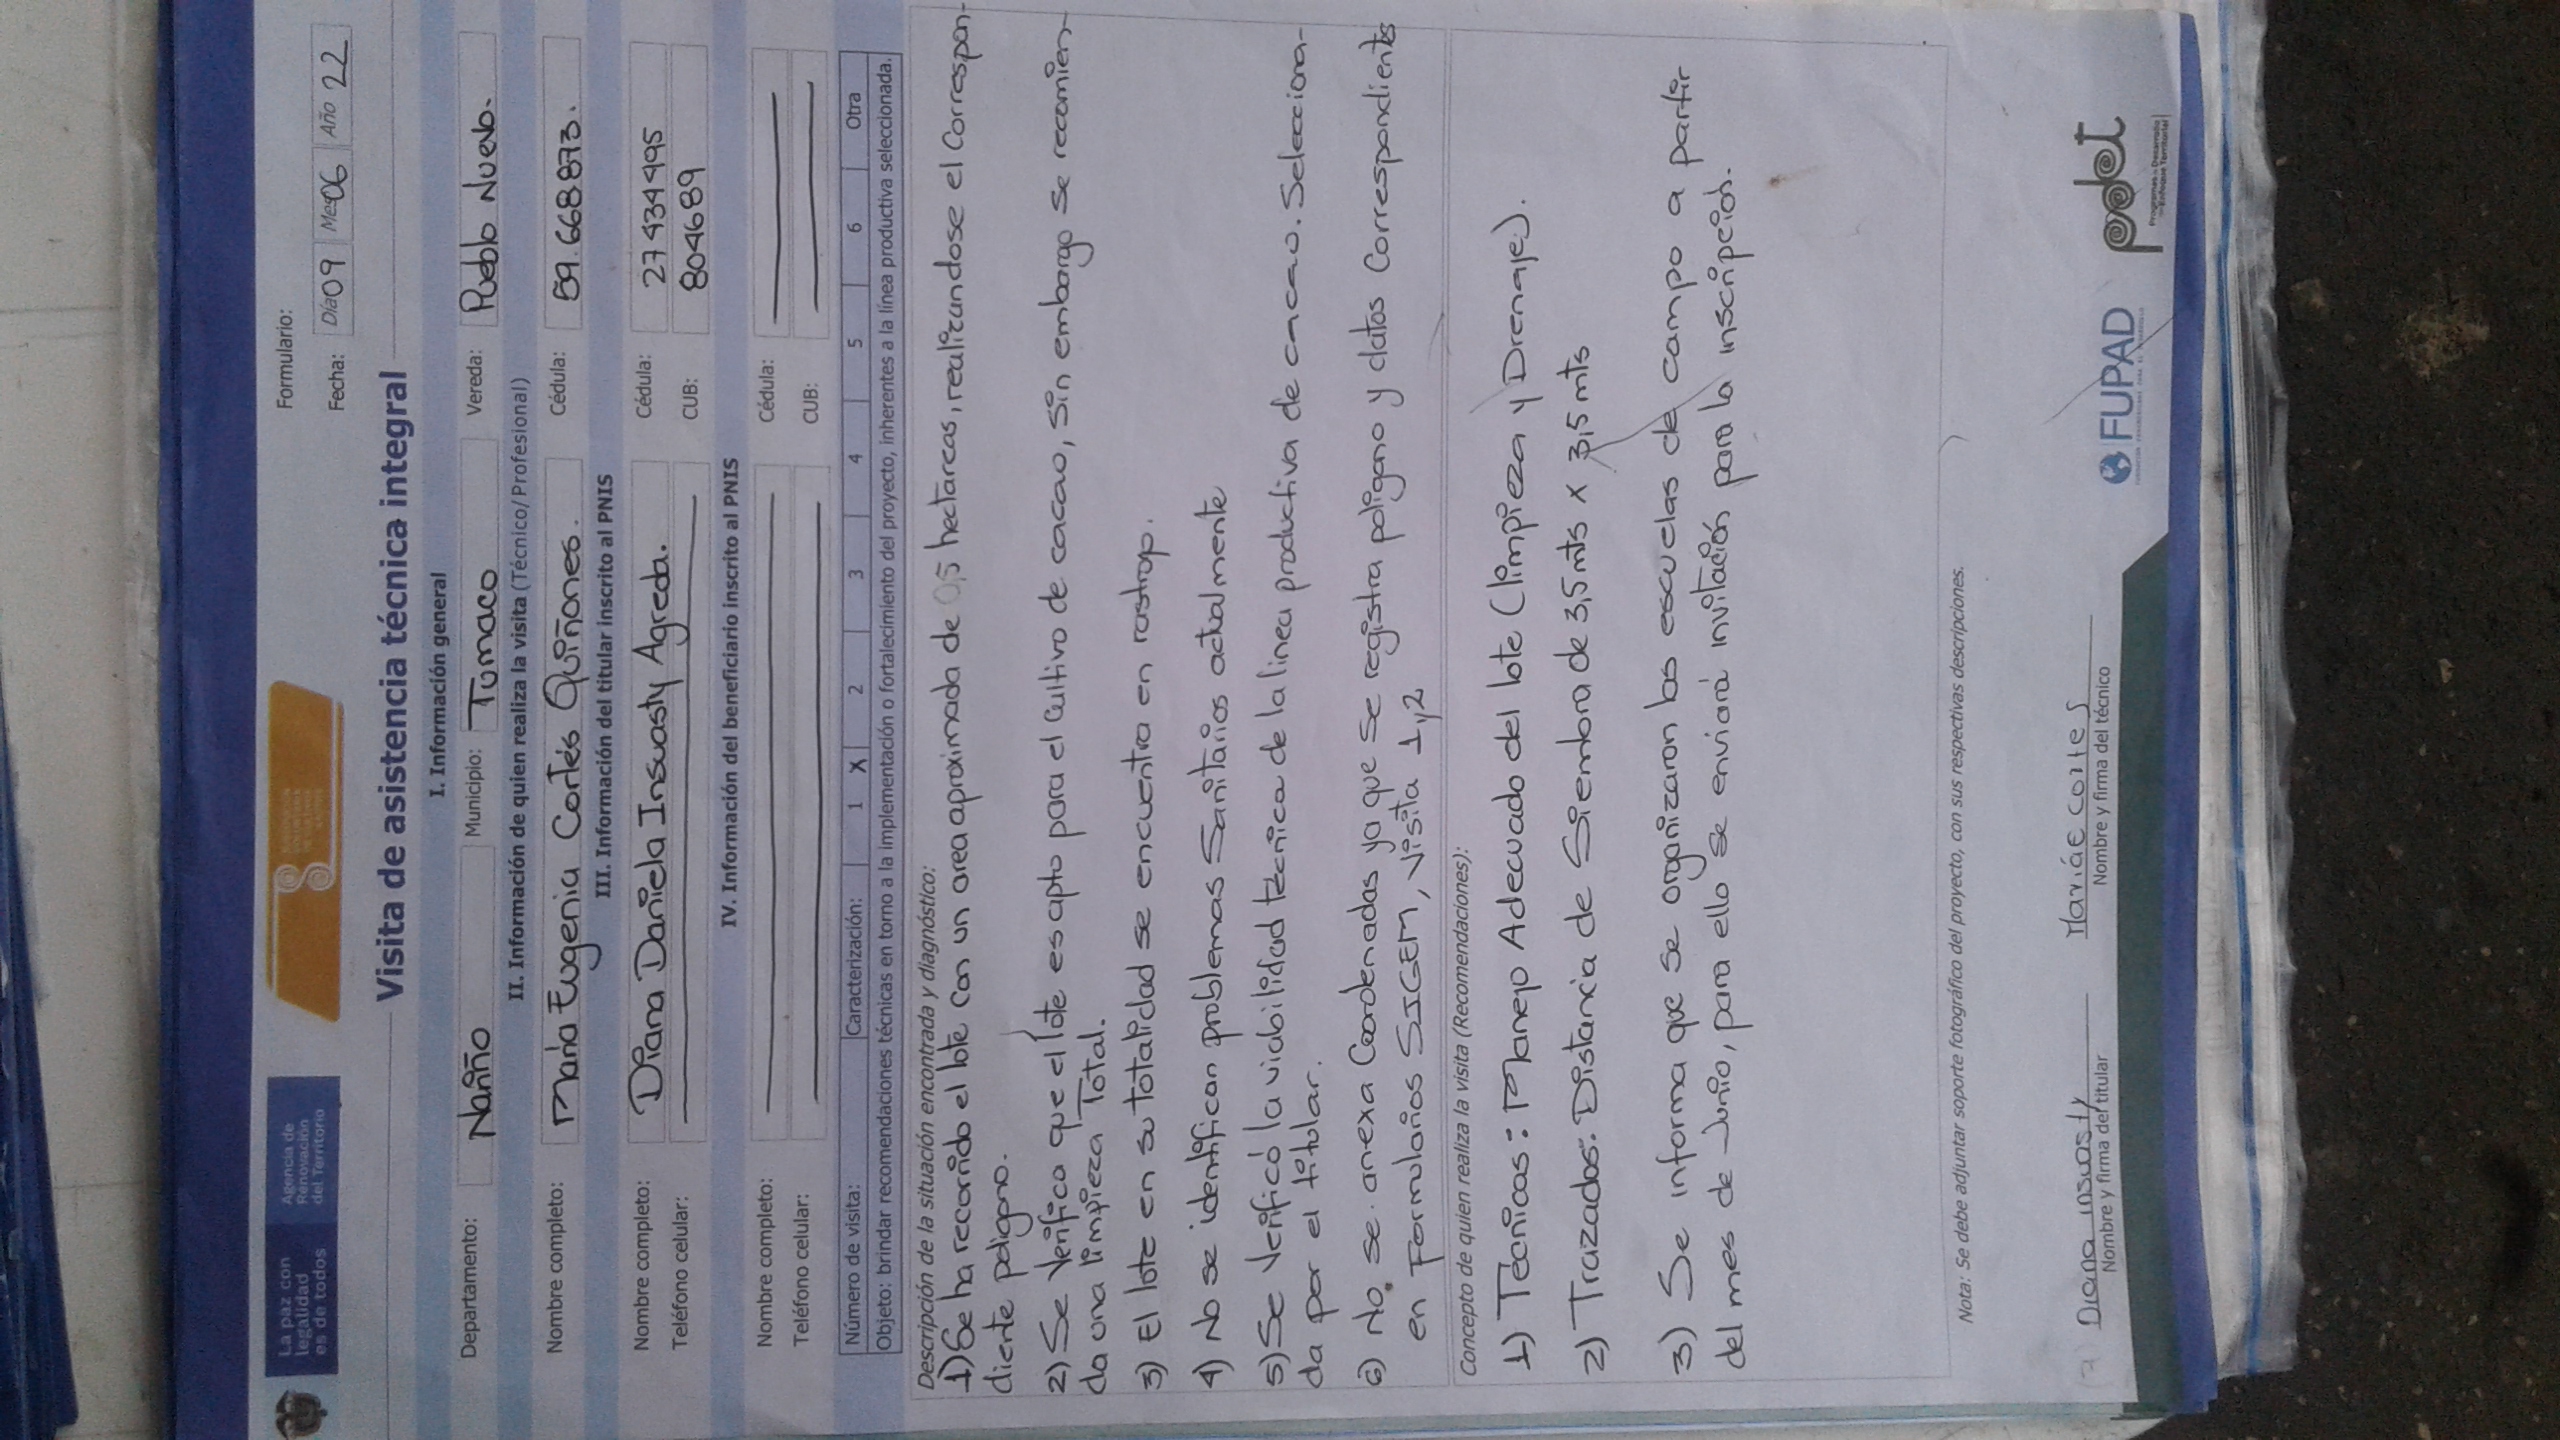 La paz con
legalidad
es de todos
Agencia de
Renovación
del Territorio
Formulario:
Fecha: Día 09 Mes 06 Año 22
Visita de asistencia técnica integral
I. Información general
Departamento: Nariño Municipio: Tumaco Vereda: Pueblo Nuevo.
II. Información de quien realiza la visita (Técnico/Profesional)
Nombre completo: Maria Eugenia Cortés Quiñones. Cédula: 59.668873.
III. Información del titular inscrito al PNIS
Nombre completo: Diana Daniela Insuasty Agreda. Cédula: 27434995
Teléfono celular: CUB: 804689
IV. Información del beneficiario inscrito al PNIS
Nombre completo: Cédula:
Teléfono celular: CUB:
Número de visita: Caracterización: 1 X 2 3 4 5 6 Otra
Objeto: brindar recomendaciones técnicas en torno a la implementación o fortalecimiento del proyecto, inherentes a la línea productiva seleccionada.
Descripción de la situación encontrada y diagnóstico:
1) Se ha recorrido el lote con un area aproximada de 0,5 hectareas, realizandose el Correspon-
diente poligono.
2) Se Verifica que el lote es apto para el Cultivo de cacao, sin embargo se recomien-
da una limpieza Total.
3) El lote en su totalidad se encuentra en rastrojo.
4) No se identifican problemas Sanitarios actualmente
5) Se Verificó la viabilidad técnica de la linea productiva de cacao. Selecciona-
da por el titular.
6) No se anexa Coordenadas ya que se registra poligono y datos Correspondientes
en Formularios SIGEM, visita 1,2
Concepto de quien realiza la visita (Recomendaciones):
1) Tecnicas: Manejo Adecuado del lote (limpieza y Drenaje).
2) Trazados: Distancia de Siembra de 3,5 mts x 3,5 mts
3) Se informa que se organizaran las escuelas de campo a partir
del mes de Junio, para ello se enviará invitación para la inscripción.
Nota: Se debe adjuntar soporte fotográfico del proyecto, con sus respectivas descripciones.
Diana insuasty
Nombre y firma del titular
María E Cortes
Nombre y firma del técnico
FUPAD
pdet
Programas de Desarrollo
con Enfoque Territorial